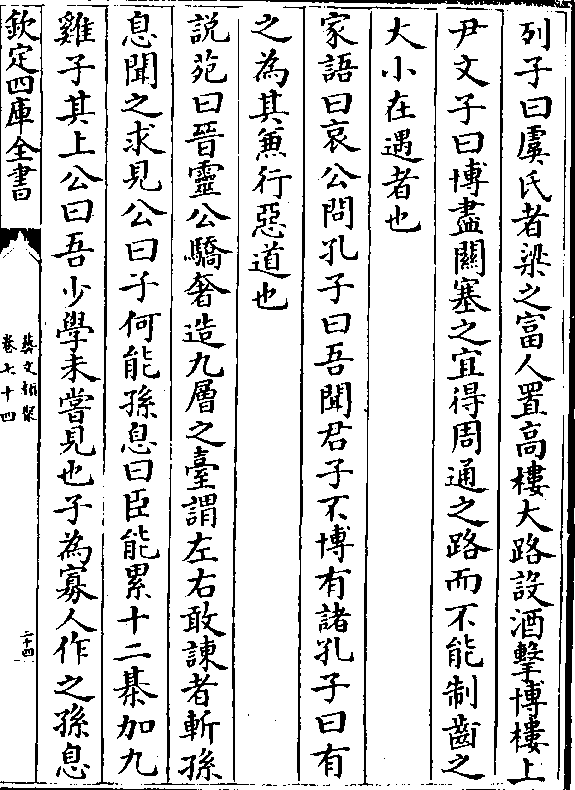 列子曰虞氏者梁之富人置高樓大路設酒擊博樓上
尹文子曰博盡關塞之宜得周通之路而不能制齒之
大小在遇者也
家語曰哀公問孔子曰吾聞君子不博有諸孔子曰有
之為其兼行惡道也
說苑曰晉靈公驕奢造九層之臺謂左右敢諫者斬孫
息聞之求見公曰子何能孫息曰臣能累十二棊加九
雞子其上公曰吾少學未嘗見也子為寡人作之孫息
欽定四庫全書
藝文類聚
卷七十四
二十四